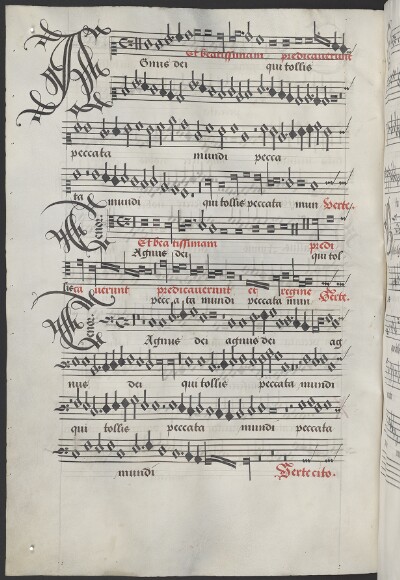 Et beatissimam predicaverunt
Agnus dei qui tollis
peccata mundi pecca
ta mundi qui tollis peccata mun Verte.
Tenor
Et bea tissimam predi
Agnus dei qui tol
lis ca verunt predicaverunt et regine Verte.
pecc a ta mundi peccata mun
Tenor
Agnus dei agnus dei ag
nus dei qui tollis peccata mundi
qui tollis peccata mundi peccata
mundi Verte cito.